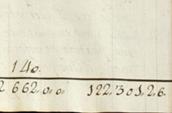 140.
2 662 0,0 122'30126.